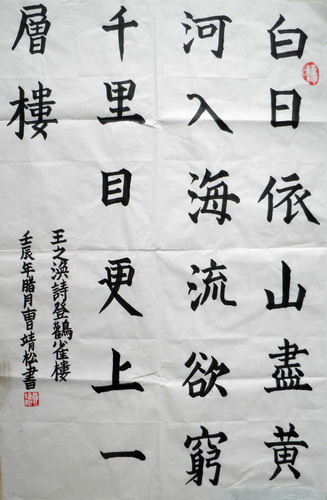 白日依山盡黃
河入海流欲窮
千里目更上一
層樓
王之渙詩登鸛雀樓
壬辰年腊月曹靖松書